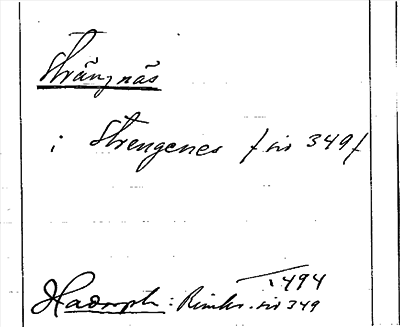 Strängnäs
i Strengenes /sid 349/
1494
Hadorph: Rimkr. sid 349